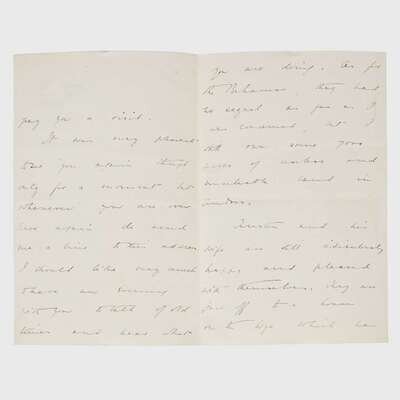 pay you a visit.
It was very pleasant
to see you again though
only for a moment, but
whenever you are over
here again do send
me a line to this address
I should like very much
to have an evening
with you to talk of old
times and hear what
you are doing. As for
the Bahamas, they had
no sequel as far as I
was concerned, but I
still own some 5000
acres of useless and
land in
and his
wife are still ridiculously
happy and pleased
with themselves. They are
just off to a house
on the which he